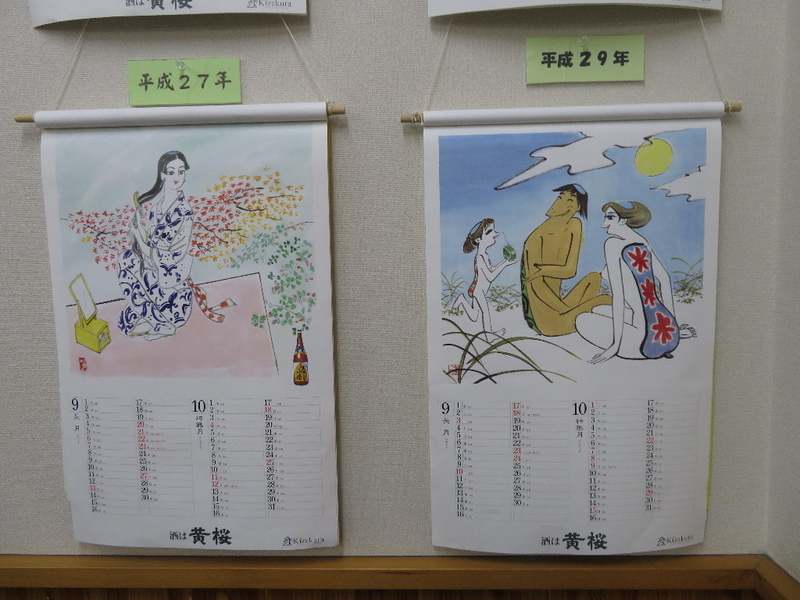 酒は 黄桜
Kizakura
Kizakura
平成27年
平成29年
9
長月
1
2
3
4
5
6
7
8
9
10
11
12
13
14
15
16
17
18
19
20
21
22
23
24
25
26
27
28
29
30
10
神無月
1
2
3
4
5
6
7
8
9
10
11
12
13
14
15
16
17
18
19
20
21
22
23
24
25
26
27
28
29
30
31
酒は 黄桜
Kizakura
9
長月
1
2
3
4
5
6
7
8
9
10
11
12
13
14
15
16
17
18
19
20
21
22
23
24
25
26
27
28
29
30
10
神無月
1
2
3
4
5
6
7
8
9
10
11
12
13
14
15
16
17
18
19
20
21
22
23
24
25
26
27
28
29
30
31
酒は 黄桜
Kizakura